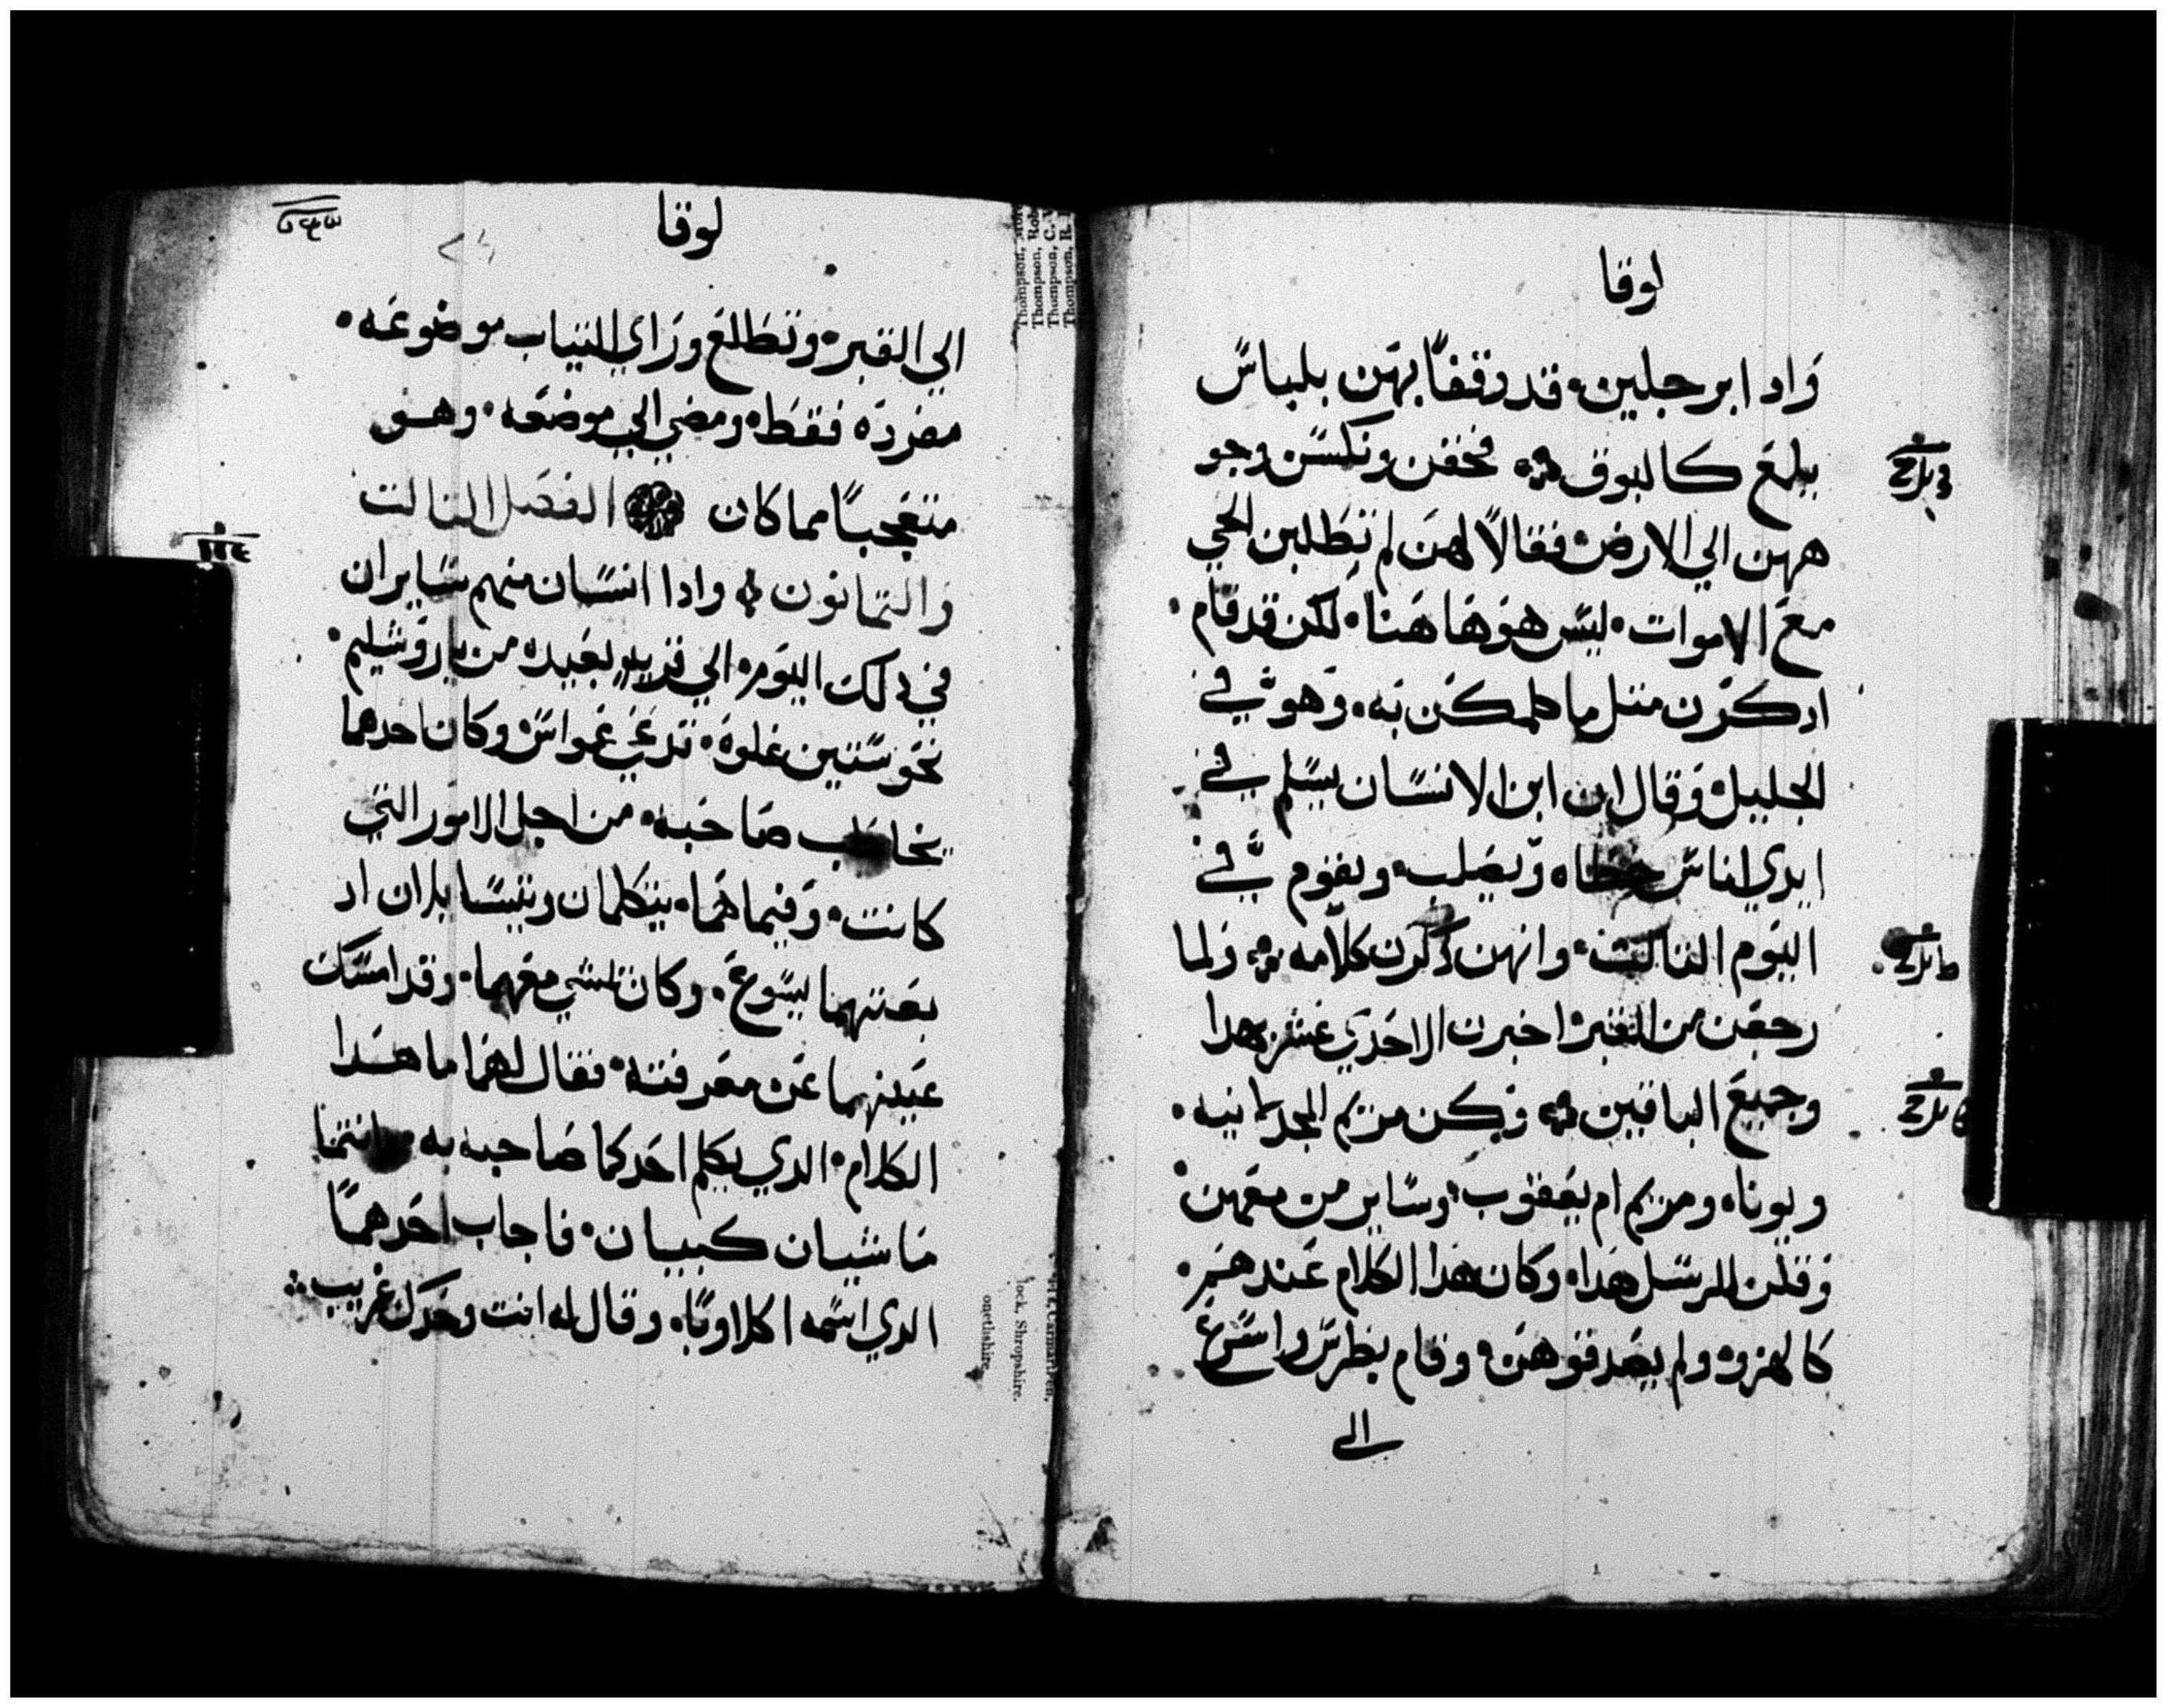 لوقا
واد ابرجلين قد وقفا بهن بلباس
يلمع كالبوق فخفن ونكسن وجو
ههن الي الارض فقالا لهن لم تطلبن الحي
مع الاموات ليس هو هاهنا لكن قد قام
ادكرن متل ما كلمكن به وهو في
الجليل وقال ان ابن الانسان يسلم في
ايدي اناس خطاه ويصلب ويقوم في
اليوم التالت وانهن ذكرن كلامه ولما
رجعن من القبر اخبرن الاحدي عشر بهدا
وجميع الباقين وكن مريم المجدلانيه
ويونا ومريم ام يعقوب وساير من معهن
وقلن للرسل هدا وكان هدا الكلام عندهم
كالهزو ولم يصدقوهن وقام بطرس واسرع
الى
لوقا
الي القبر وتطلع وراي التياب موضوعه
مفرده فقط ومضي الي موضعه وهو
متعجبا مما كان الفصل التالت
والتمانون وادا انسان منهم سايران
في دلك اليوم الي قريه بعيده من ياروشليم
نحو ستين غلوه تدعي عمواس وكان احدهما
يخاطب صاحبه من اجل الامور التي
كانت وفيما هما يتكلمان ويتسايلان اد
بغتهما يسوع وكان يمشي معهما وقد امسك
عينيهما عن معرفته فقال لهما ما هدا
الكلام الدي يكلم احدكما صاحبه به وانتما
ماشيان كييبان فاجاب احدهما
الدي اسمه اكلاوبا وقال له انت وحدك غريب